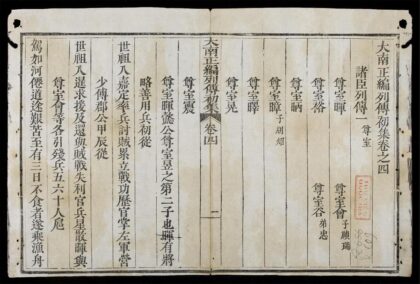 大南正編列傳初集卷之四
諸臣列傳一 尊室
尊室暉 尊室會
尊室 尊室谷 弟忠
尊室
尊室暲
尊室曎
尊室晃
大南正編列傳初集 卷四 一
尊室震
尊室暉懿公尊室昱之第二子也暉有將
略善用兵初從
世祖入嘉定率兵討賊累立戰功歷官掌左軍營
少傅郡公甲辰從
世祖入暹求援及還與賊戰失利官兵星散暉與
尊室會等各引殘兵五六十人扈
駕如河僊道途艱苦至有三日不食者遂乘漁舟